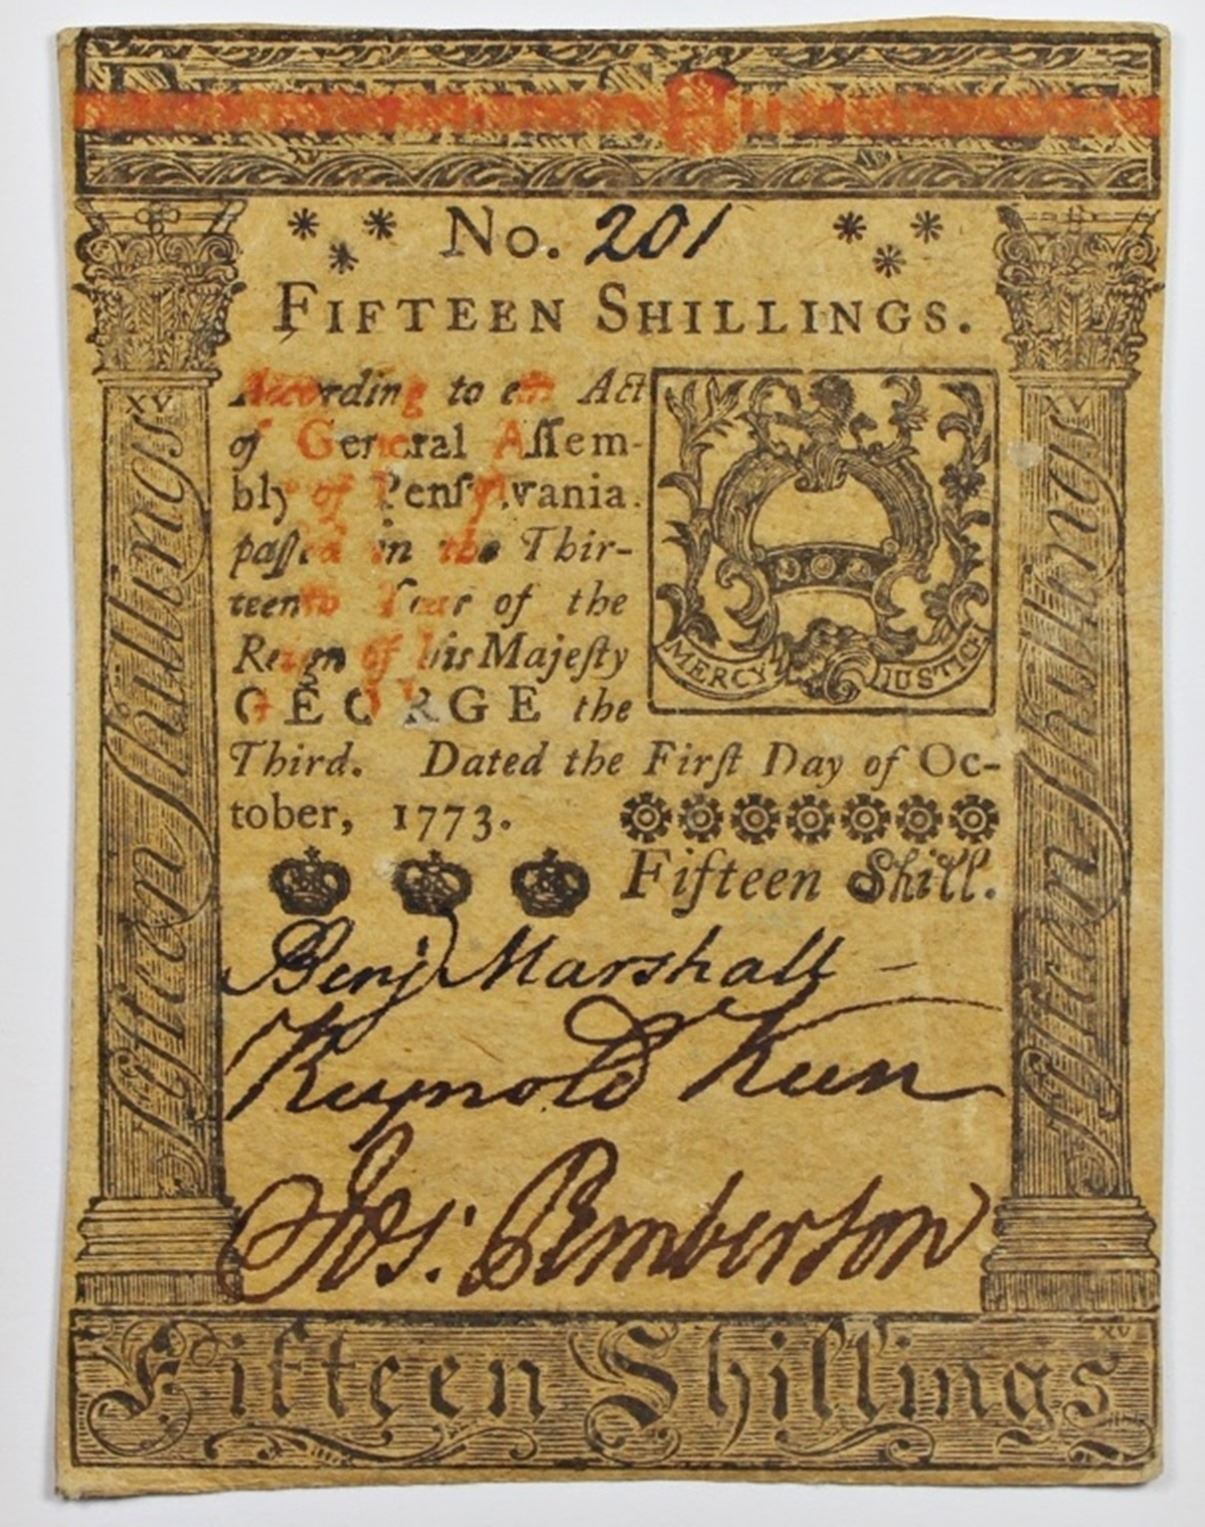 No. 201
FIFTEEN SHILLINGS.
According to an Act
of General Aſſem-
bly of Penſylvania
paſſed in the Thir-
teenth Year of the
Reign of his Majeſty
GEORGE the
Third. Dated the Firſt Day of Oc-
tober, 1773.
Fifteen Shill.
MERCY JUSTICE
XV
Fifteen Shillings
XV
Fifteen Shillings
Benj Marshall
Reynold Keen
Jos: Pemberton
XV
Fifteen Shillings